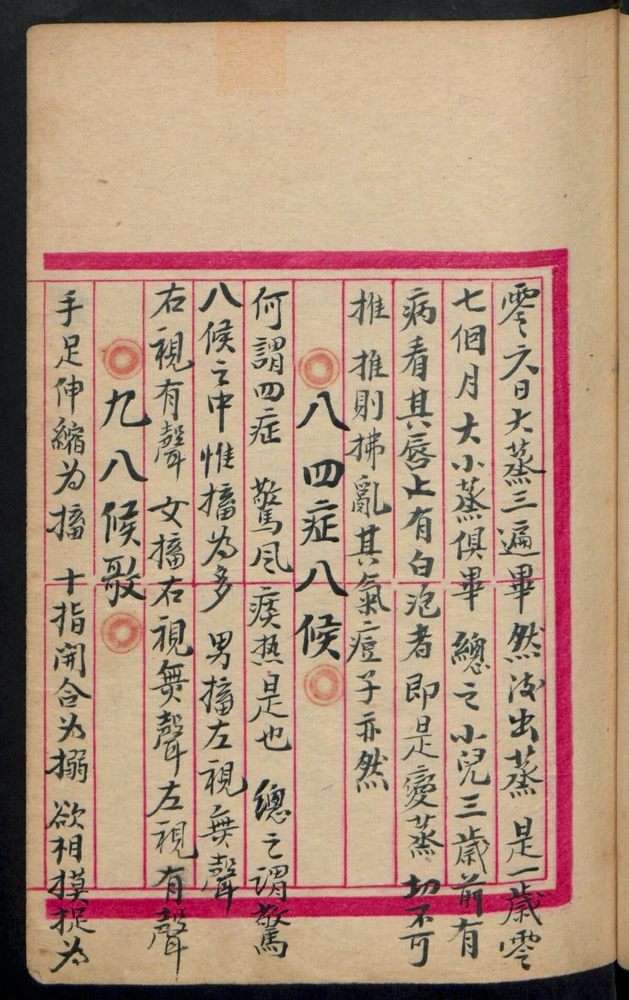 零六日大蒸三遍畢 然後出蒸 是一歲零
七個月大小蒸俱畢 總之小兒三歲前有
病看其唇上有白泡者即是變蒸切不可
推 推則拂亂其氣痘子亦然
八四症八候
何謂四症 驚風痰热是也 總之謂驚
八候之中惟搐为多 男搐左視無聲
右視有聲 女搐右視無聲左視有聲
九八候歌
手足伸縮为搐 十指開合为搦 欲相撲捉为